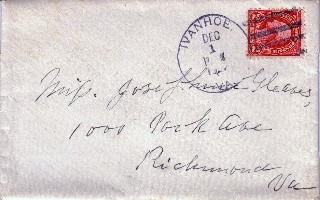 IVANHOE
DEC
1
Miss. Josephine Gleaves,
1000 Park Ave
Richmond
Va